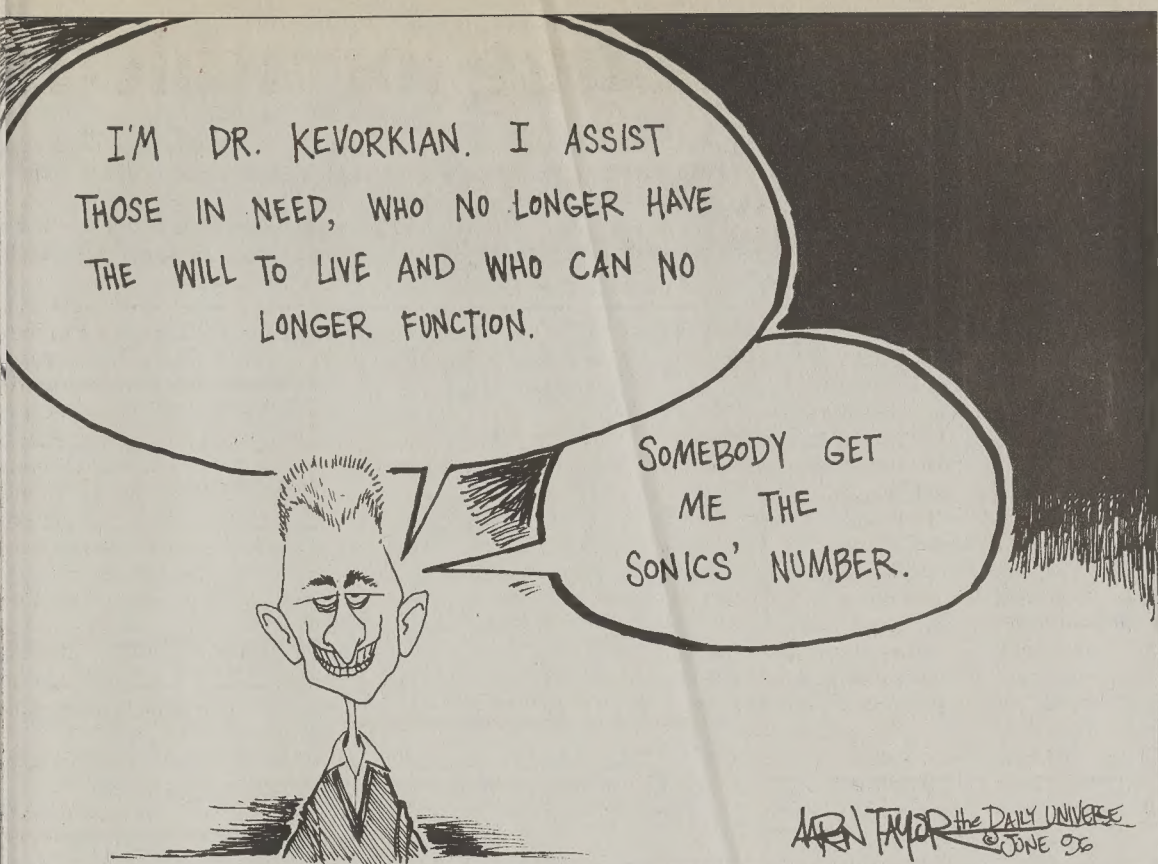 I'M DR. KEVORKIAN. I ASSIST
THOSE IN NEED, WHO NO LONGER HAVE
THE WILL TO LIVE AND WHO CAN NO
LONGER FUNCTION.
SOMEBODY GET
ME THE
SONICS' NUMBER.
TAYLOR the DAILY UNIVERSE
© JUNE 96